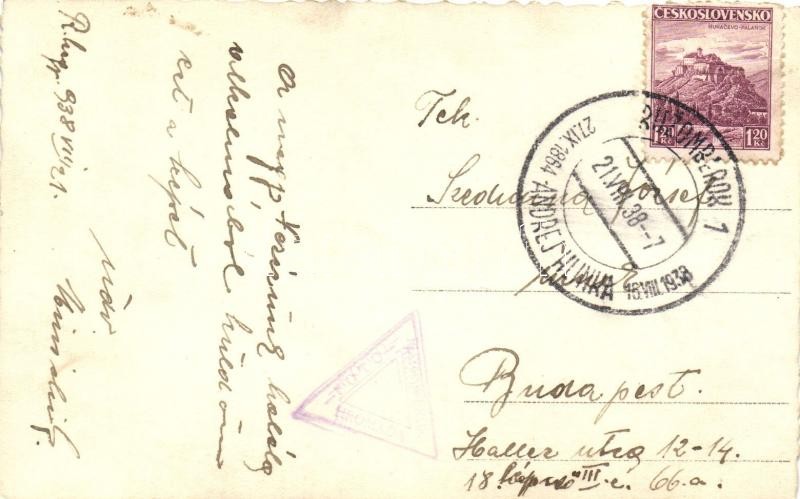 R.bergy. 938 VIII/21.
A nagy vezérünk halála
alkalmából küldöm
ezt a képet
üdv
ČESKOSLOVENSKO
MUKAČEVO-PALANOK
1.20 Kč 1.20 Kč
RUŽOMBEROK 1
27.IX.1864 ANDREJ HLINKA 16.VIII.1938
21.VIII.38-7
Tek.
József
Budapest.
Haller utca 12-14.
18. lépcső III. e. 66. a.